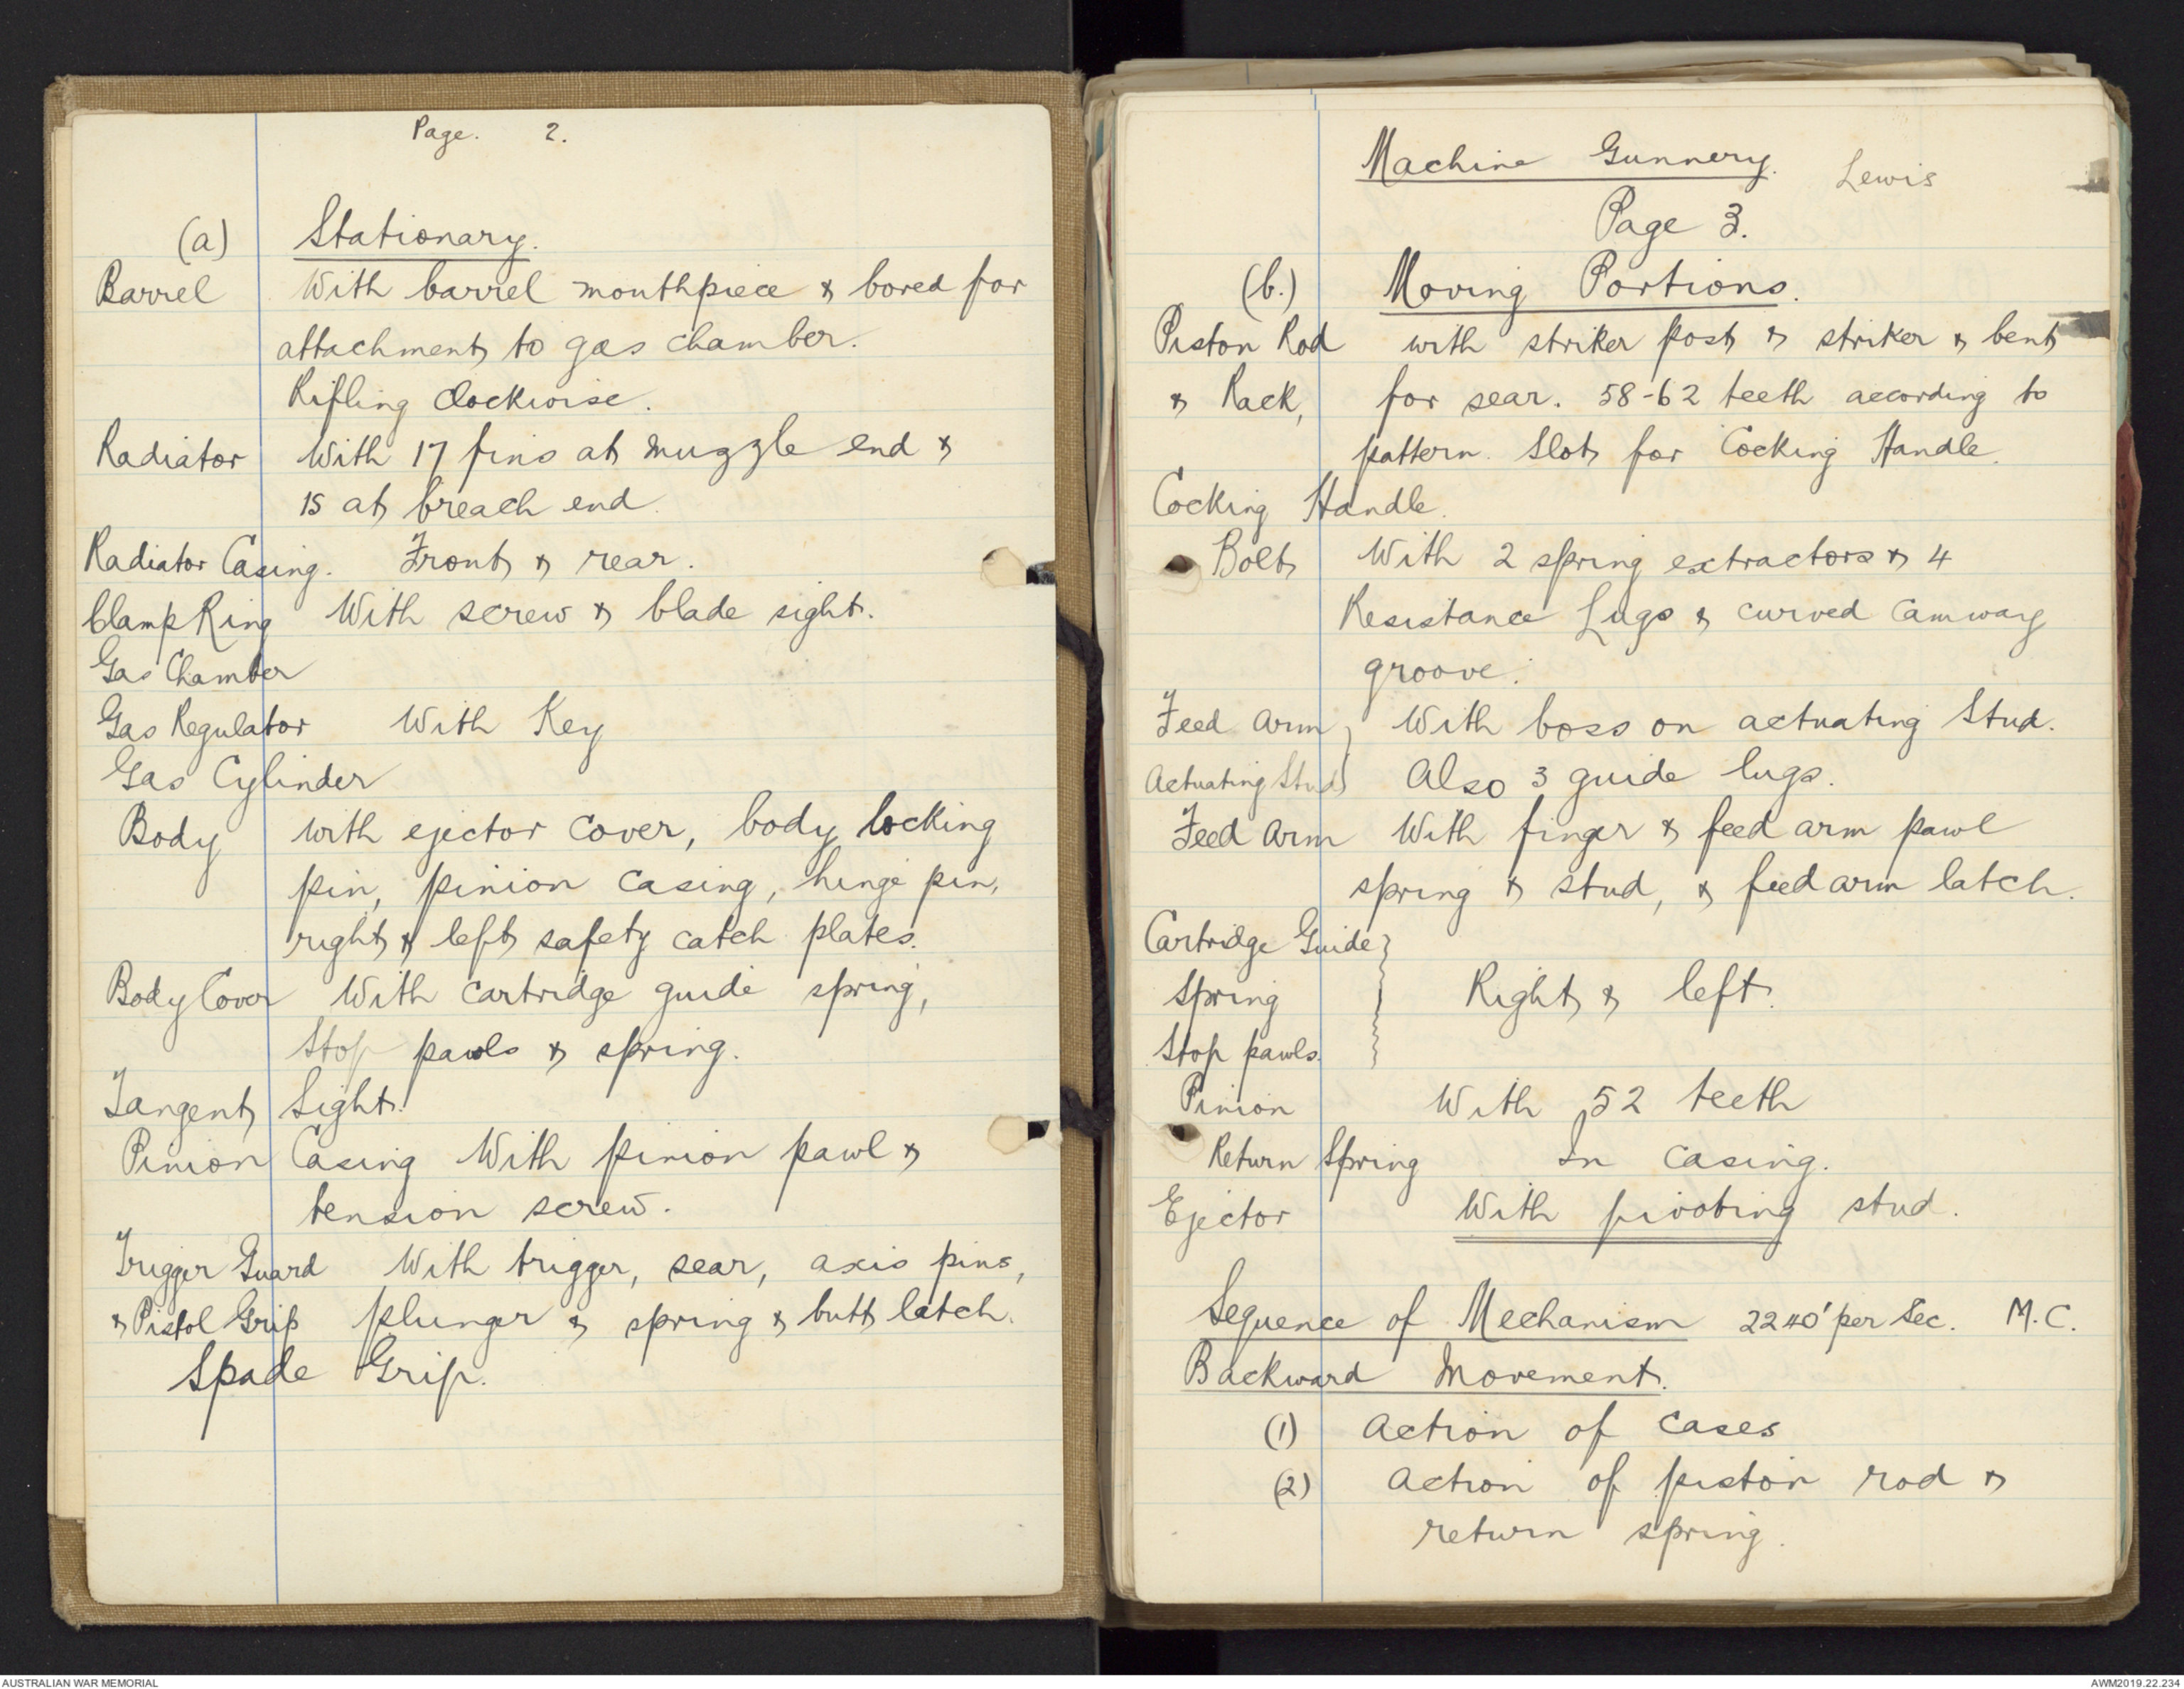 Page. 2.
(a) Stationary.
Barrel With barrel mouthpiece & bored for
attachment to gas chamber.
Rifling Clockwise.
Radiator With 17 fins at muzzle end &
15 at breach end.
Radiator Casing. Front & rear.
Clamp Ring With screw & blade sight.
Gas Chamber
Gas Regulator With Key
Gas Cylinder
Body with ejector cover, body locking
pin, pinion casing, hinge pin,
right & left safety catch plates.
Body Cover With cartridge guide spring,
Stop pawls & spring.
Tangent Sight.
Pinion Casing With pinion pawl &
tension screw.
Trigger Guard With trigger, sear, axis pins,
& Pistol Grip plunger & spring & butt latch.
Spade Grip.
Machine Gunnery. Lewis
Page 3.
(b.) Moving Portions.
Piston Rod with striker post & striker & bent
& Rack, for sear. 58-62 teeth according to
pattern. Slot for Cocking Handle.
Cocking Handle.
Bolt With 2 spring extractors & 4
Resistance Lugs & curved camway
groove.
Feed Arm } With boss on actuating Stud.
Actuating Stud } Also 3 guide lugs.
Feed Arm With finger & feed arm pawl
spring & stud, & feed arm latch.
Cartridge Guide }
Spring } Right & left.
Stop pawls. }
Pinion With 52 teeth
Return Spring In Casing.
Ejector With pivoting stud.
Sequence of Mechanism 2240' per Sec. M.C.
Backward Movement.
(1) Action of Cases
(2) Action of piston rod &
return spring.
AUSTRALIAN WAR MEMORIAL
AWM2019.22.234